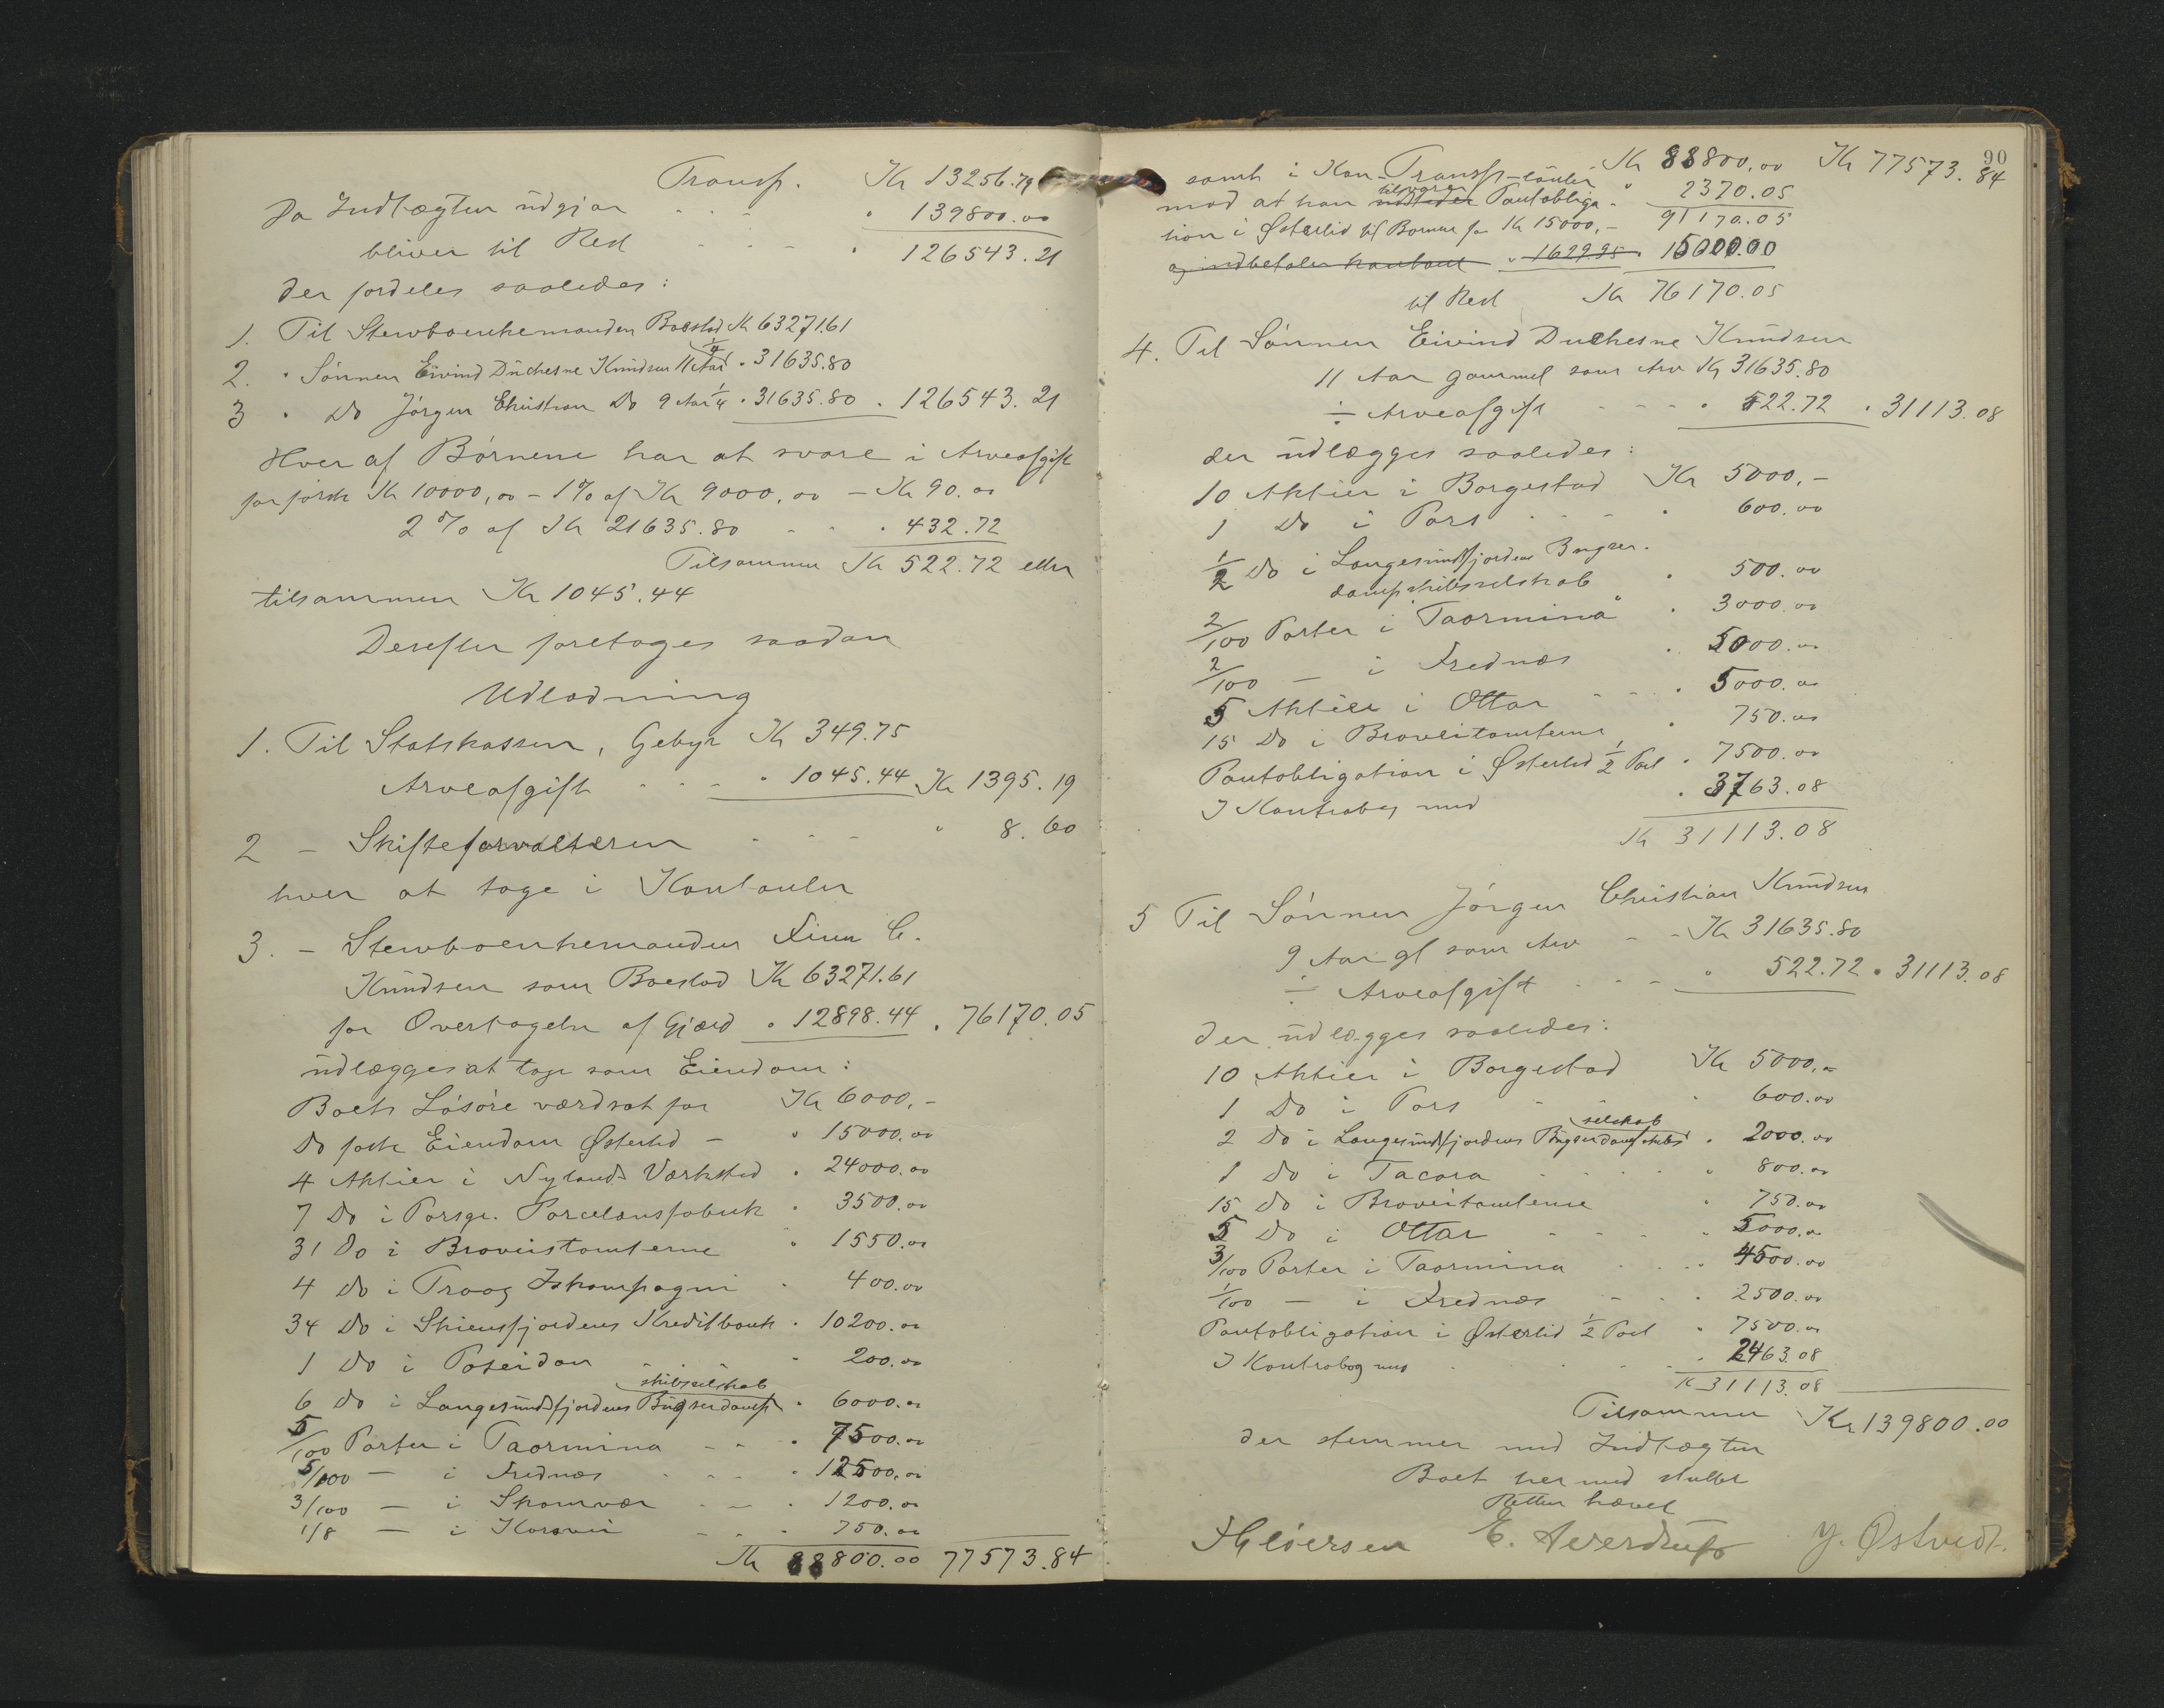 Transp. Kr 13256.79
Da Indtægten udgjør " 139800.00
bliver til Rest " 126543.21
der fordeles saaledes:
1. Til Stervboenkemanden Boeslod Kr 63271.61
2. " Sønnen Eivind Duchesne Knudsen 11 Aar 1/4 " 31635.80
3 " Do Jørgen Christian Do 9 Aar 1/4 " 31635.80 " 126543.21
Hver af Børnene har at svare i Arveafgift
for første Kr 10000,00 - 1% af Kr 9000,00 - Kr 90.00
2% af Kr 21635.80 " 432.72
Tilsammen Kr 522.72 eller
tilsammen Kr 1045.44
Derefter foretages saadan
Udlodning
1. Til Statskassen, Gebyr Kr 349.75
Arveafgift " 1045.44 Kr 1395.19
2 - Skifteforvalteren " 8.60
hver at tage i Kontanter
3. - Stervboenkemanden Finn C.
Knudsen som Boeslod Kr 63271.61
for Overtagelse af Gjæld " 12898.44 " 76170.05
udlægges at tage som Eiendom:
Boets Løsøre værdsat for Kr 6000,-
Do faste Eiendom Østerlid - " 15000.00
4 Aktier i Nylands Værksted " 24000.00
7 Do i Porsgr. Porcelænsfabrik " 3500.00
31 Do i Broveitomterne " 1550.00
4 Do i Traag Iskompagni " 400.00
34 Do i Skiensfjordens Kreditbank " 10200.00
1 Do i Poseidon " 200.00
6 Do i Langesundsfjordens Bugserdampskibsselskab " 6000.00
5/100 Parter i Taormina " 7500.00
5/100 - i Frednæs " 12500.00
3/100 - i Skomvær " 1200.00
1/8 - i Korsvei " 750.00
Kr 88800.00 77573.84
90
Transp. Kr 88800,00 Kr 77573.84
samt i Kontanter " 2370.05
mod at han udsteder tilsvarer Pantobliga- 91170.05
tion i Østerlid til Børnene for Kr 15000,-
og indbetaler kontant " 1629.95 15000.00
til Rest Kr 76170.05
4. Til Sønnen Eivind Duchesne Knudsen
11 Aar gammel som Arv Kr 31635.80
÷ Arveafgift " 522.72 " 31113.08
der udlægges saaledes:
10 Aktier i Borgestad Kr 5000,-
1 Do i Pors " 600.00
1/2 Do i Langesundsfjordens Bugser-
dampskibsselskab " 500.00
2/100 Parter i "Taormina" " 3000.00
2/100 - i Frednæs " 5000.00
5 Aktier i Ottar " 5000.00
15 Do i Broveitomterne " 750.00
Pantobligation i Østerlid 1/2 Part " 7500.00
I Kontrabog med " 3763.08
Kr 31113.08
5 Til Sønnen Jørgen Christian Knudsen
9 Aar gl som Arv - - Kr 31635.80
÷ Arveafgift " 522.72 " 31113.08
der udlægges saaledes:
10 Aktier i Borgestad Kr 5000,-
1 Do i Pors " 600.00
2 Do i Langesundsfjordens Bugserdampskibsselskab " 2000.00
1 Do i Tacora " 800.00
15 Do i Broveitomterne " 750.00
5 Do i Ottar " 5000.00
3/100 Parter i Taormina " 4500.00
1/100 - i Frednæs " 2500.00
Pantobligation i Østerlid 1/2 Part " 7500.00
I Kontrabog med " 2463.08
Kr 31113.08
Tilsammen Kr 139800.00
der stemmer med Indtægten
Boet hermed sluttet
Retten hævet
E. Sverdrup J. Østvedt.